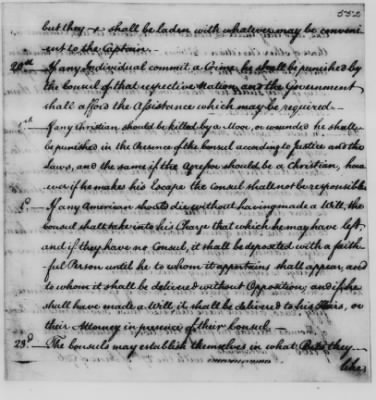 552
but they & shall be laden with whatever may be conveni
ent to the Captain.
20th If any Individual commit a Crime, he shall be punished by
the Consul of that respective Nation, and the Government
shall afford the Assistance which may be required.
If any Christian should be killed by a Moor, or wounded he shall
be punished in the Presence of the Consul according to Justice and the
Laws, and the same if the Agressor should be a Christian, how
ever if he makes his Escape the Consul shall not be responsible
If any American should die without having made a Will, the
Consul shall take into his Charge that which he may have left,
and if they have no Consul, it shall be deposited with a faith
ful Person until he to whom it appertains shall appear, and
to whom it shall be delivered without Opposition; and if he
shall have made a Will, it shall be delivered to his Heirs, or
their Attorney in presence of their Consul.
23d The Consuls may establish themselves in what Ports they
like